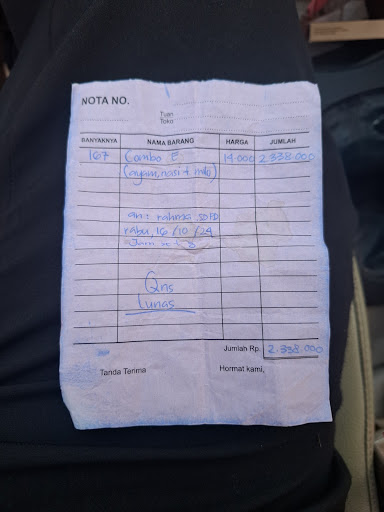 NOTA NO.
Tuan
Toko
BANYAKNYA NAMA BARANG HARGA JUMLAH
167 Combo E 14.000 2.338.000
(ayam, nasi +
an:
rabu, 16/10/24
Qris
Lunas
Jumlah Rp. 2.338.000
Tanda Terima Hormat kami,